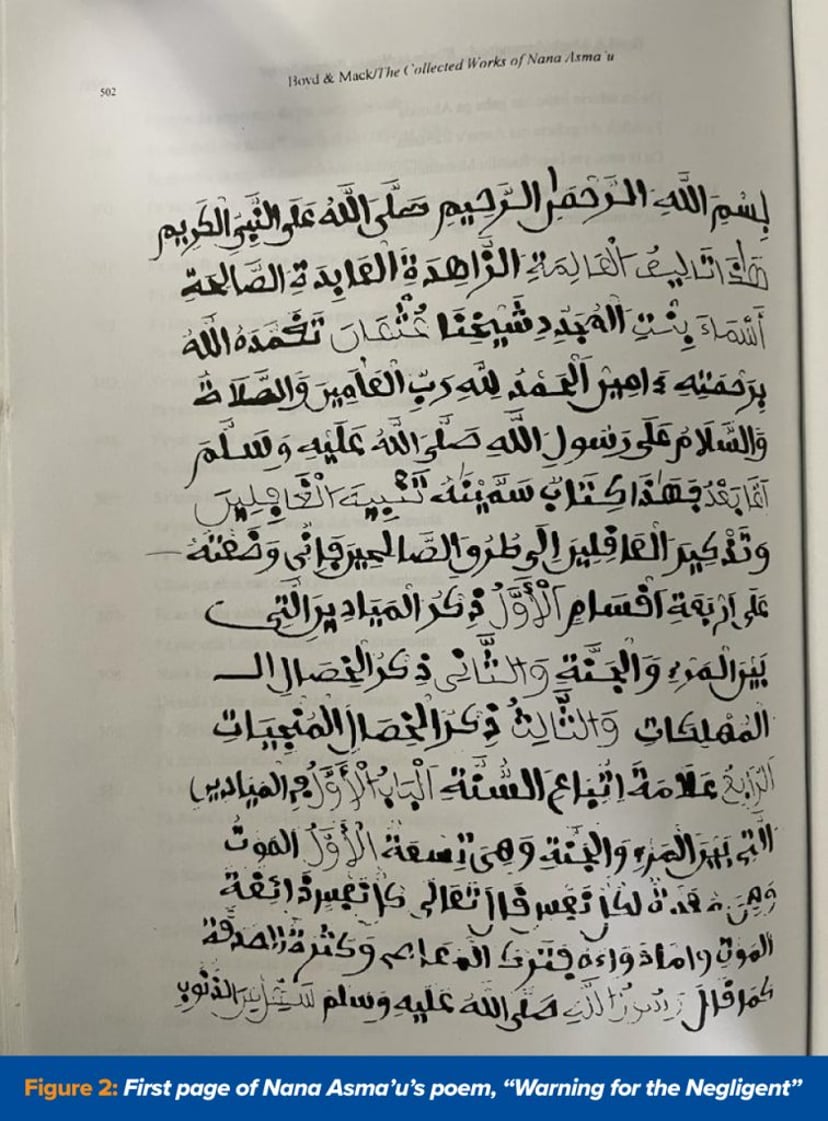 Boyd & Mack/The Collected Works of Nana Asma'u
502
بِسْمِ اللَّهِ الرَّحْمَنِ الرَّحِيمِ صَلَّى اللَّهُ عَلَى النَّبِيِّ الكَرِيمِ
هَذَا تَالِيفُ الْعَالِمَةِ الزَّاهِدَةِ الْعَابِدَةِ الصَّالِحَةِ
أَسْمَاءَ بِنْتِ الْمُجَدِّدِ شَيْخِنَا عُثْمَانَ تَغَمَّدَهُ اللَّهُ
بِرَحْمَتِهِ ءَامِينَ الْحَمْدُ لِلَّهِ رَبِّ الْعَالَمِينَ وَالصَّلَاةُ
وَالسَّلَامُ عَلَى رَسُولِ اللَّهِ صَلَّى اللَّهُ عَلَيْهِ وَسَلَّمَ
أَمَّا بَعْدُ فَهَذَا كِتَابٌ سَمَّيْتُهُ تَنْبِيهَ الْغَافِلِينَ
وَتَذْكِيرَ الْعَاقِلِينَ إِلَى طُرُقِ الصَّالِحِينَ فَإِنِّي وَضَعْتُهُ
عَلَى أَرْبَعَةِ أَقْسَامٍ الْأَوَّلُ ذِكْرُ الْمَيَادِينِ الَّتِي
بَيْنَ الْمَرْءِ وَالْجَنَّةِ وَالثَّانِي ذِكْرُ الْخِصَالِ الـ
الْمُهْلِكَاتِ وَالثَّالِثُ ذِكْرُ الْخِصَالِ الْمُنْجِيَاتِ
الرَّابِعُ عَلَامَةَ اتِّبَاعِ السُّنَّةِ الْبَابُ الْأَوَّلُ فِي الْمَيَادِينِ
الَّتِي بَيْنَ الْمَرْءِ وَالْجَنَّةِ وَهِيَ تِسْعَةٌ الْأَوَّلُ الْمَوْتُ
وَهِيَ لِكُلِّ نَفْسٍ قَالَ تَعَالَى كُلُّ نَفْسٍ ذَائِقَةُ
الْمَوْتِ وَأَمَّا دَوَاءُهُ فَتَرْكُ الْمَعَاصِي وَكَثْرَةُ الصَّدَقَةِ
كَمَا قَالَ رَسُولُ اللَّهِ صَلَّى اللَّهُ عَلَيْهِ وَسَلَّمَ الذُّنُوبِ
Figure 2: First page of Nana Asma'u's poem, "Warning for the Negligent"